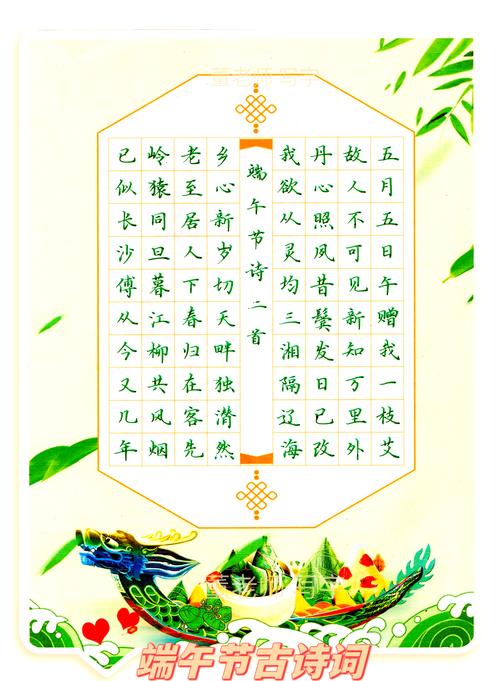 董老师 写字
五月五日午赠我一枝艾
故人不可见新知万里外
丹心照夙昔鬓发日已改
我欲从灵均三湘隔辽海
端午节诗二首
乡心新岁切天畔独潸然
老至居人下春归在客先
岭猿同旦暮江柳共风烟
已似长沙傅从今又几年
董老师 写字
端午节古诗词